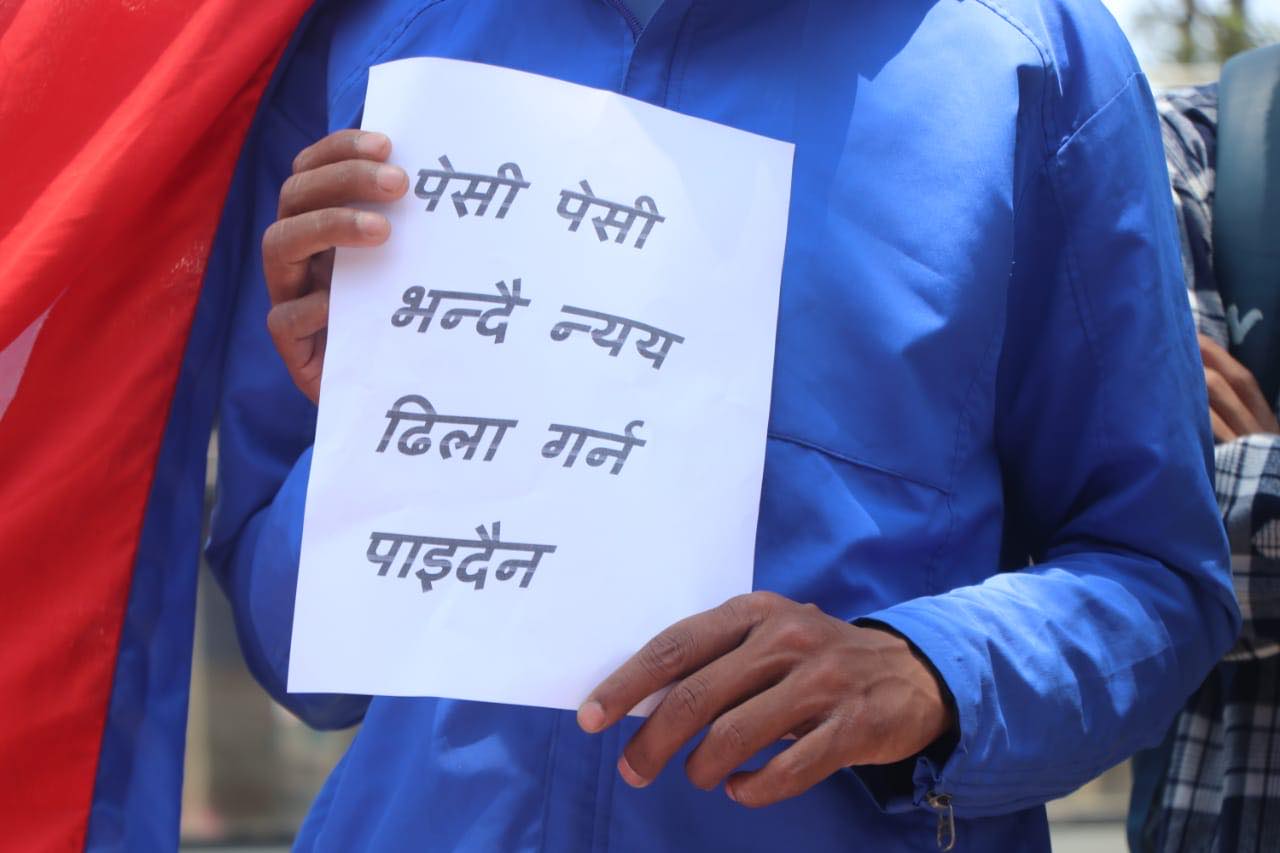 पेसी पेसी
भन्दै न्यय
ढिला गर्न
पाइदैन